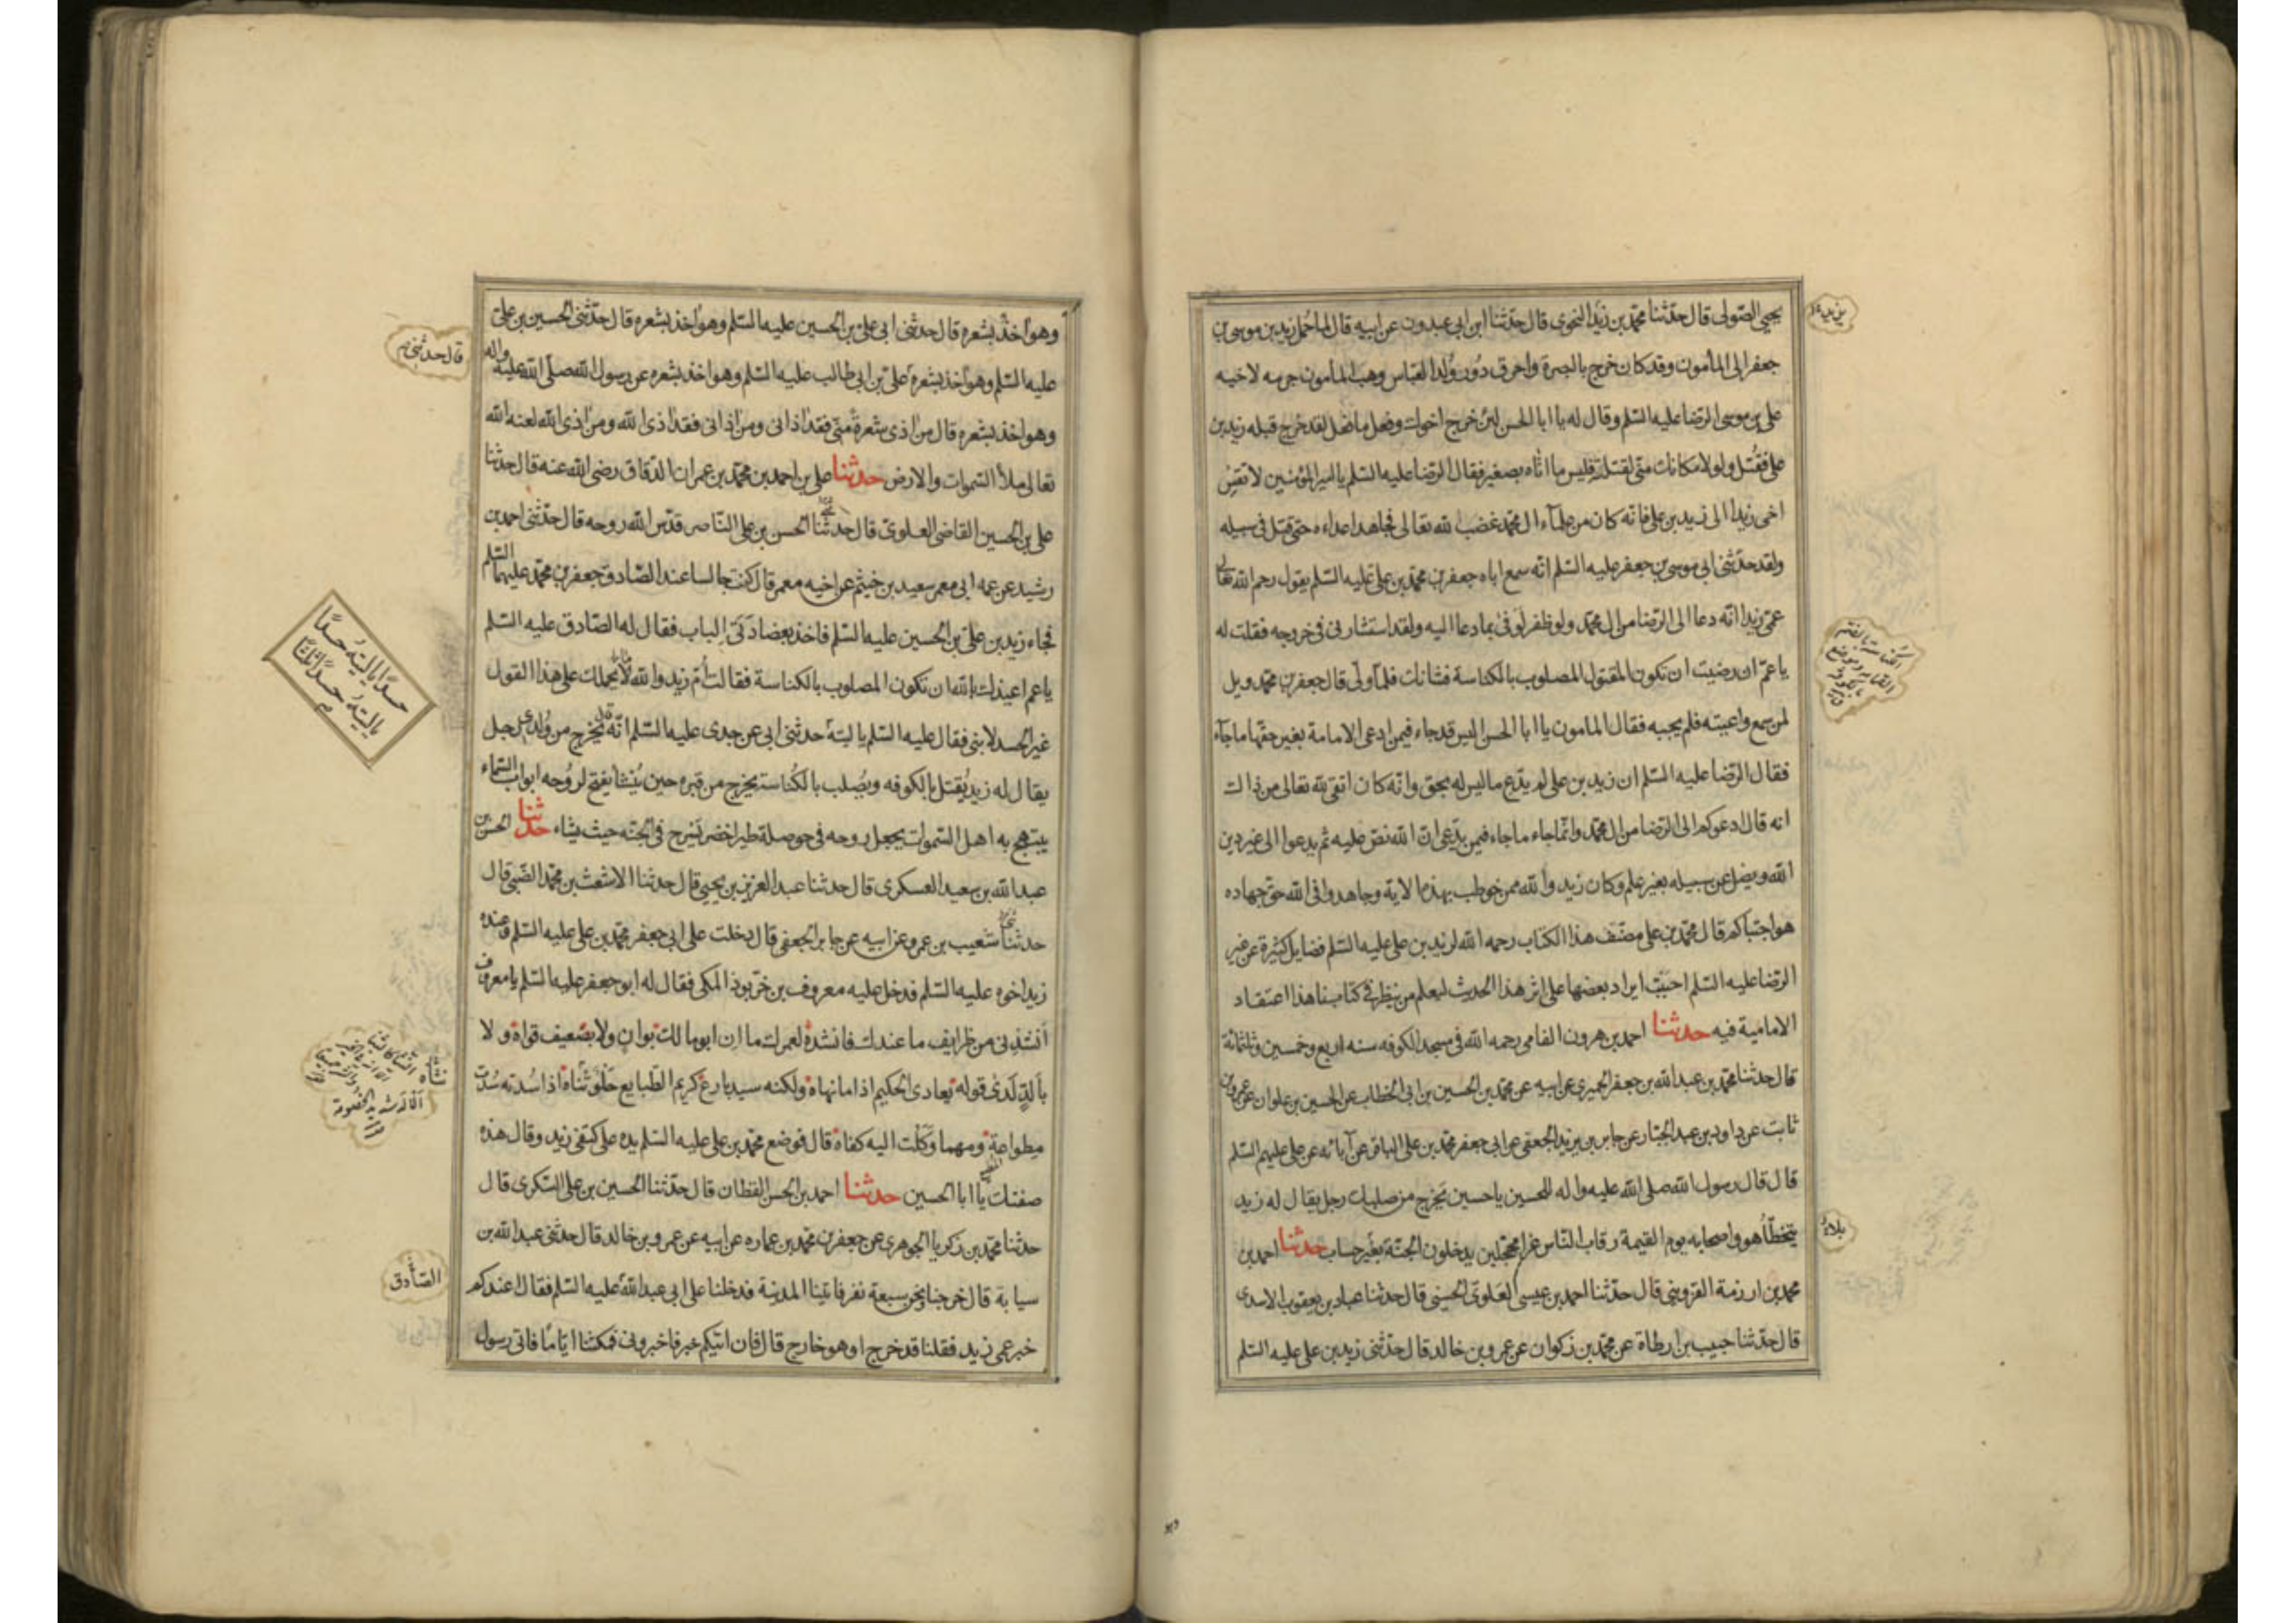 يحيى الصّولى قال حدّثنا محمّد بن زيد النحوى قال حدّثنا ابن ابى عبدون عن ابيه قال لما حُمل زيد بن موسى بن
جعفر الى المأمون وقد كان خرج بالبصرة واحرق دُور وُلد العبّاس وهب المأمون جرمه لاخيه
على بن موسى الرّضا عليه السّلم وقال له يا ابا الحسن لئن خرج اخوك وفعل ما فعل لقد خرج قبله زيد بن
على فقُتل ولولا مكانك منّى لقتلته فليس ما اتاه بصغير فقال الرّضا عليه السّلم يا امير المؤمنين لا تقِس
اخى زيدا الى زيد بن على فانّه كان من علمآء ال محمّد غضب لله تعالى فجاهد اعداءه حتى قتل فى سبيله
ولقد حدّثنى ابى موسى بن جعفر عليه السّلم انّه سمع اباه جعفر بن محمّد بن على عليه السّلم يقول رحم الله تعالى
عمّى زيدا انّه دعا الى الرّضا من ال محمّد ولو ظفر لَوَفىٰ بما دعا اليه ولقد استشارنى فى خروجه فقلت له
يا عمّ ان رضيت ان تكون المقتول المصلوب بالكناسة فشانك فلمّا ولّى قال جعفر بن محمّد ويل
لمن سمع واعيته فلم يجبه فقال المامون يا ابا الحسن اليس قد جاء فيمن ادعى الامامة بغير حقّها ما جآء
فقال الرّضا عليه السّلم ان زيد بن على لم يدّع ما ليس له بحق وانّه كان اتقى لله تعالى من ذالك
انه قال ادعوكم الى الرّضا من ال محمّد وانّما جاء ما جاء فيمن يدّعى انّ الله نصّ عليه ثم يدعوا الى غير دين
الله ويضل عن سبيله بغير علم وكان زيد والله ممن خوطب بهذه الاية وجاهدوا فى الله حقّ جهاده
هو اجتباكم قال محمّد بن على مصنّف هذا الكتاب رحمه الله لزيد بن على عليه السّلم فضايل كثيرة عن غير
الرّضا عليه السّلم احببت ايراد بعضها على اثر هذا الحديث ليعلم من ينظر فى كتابنا هذا اعتقاد
الامامية فيه حدثنا احمد بن هرون الفامى رحمه الله فى مسجد الكوفه سنه اربع وخمسين وثلثمائة
قال حدثنا محمّد بن عبد الله بن جعفر الحميرى عن ابيه عن محمّد بن الحسين بن ابى الخطاب عن الحسين بن علوان عن عمرو بن
ثابت عن داود بن عبد الجبّار عن جابر بن يزيد الجعفى عن ابى جعفر محمّد بن على الباقر عن آبائه عن على عليهم السّلم
قال قال رسول الله صلى الله عليه واله للحسين يا حسين يَخرج من صلبك رجل يقال له زيد
يتخطّأ هو واصحابه يوم القيمة رقاب النّاس غرا محجّلين يدخلون الجنّة بغير حساب حدثنا احمد بن
محمد بن ارزمة القزوينى قال حدّثنا احمد بن عيسى العَلوىّ الحسينى قال حدثنا عباد بن يعقوب الاسدى
قال حدّثنا حبيب بن ارطاة عن محمّد بن ذكوان عن عمرو بن خالد قال حدّثنى زيد بن على عليه السّلم
بلاءٌ
وهو اخذ بشعره قال حدثنى ابى على بن الحسين عليه السّلم وهو اخذ بشعره قال حدّثنى الحسين بن على
عليه السّلم وهو اخذ بشعره على بن ابى طالب عليه السّلم وهو اخذ بشعره عن رسول الله صلّى الله عليه واله
وهو اخذ بشعره قال من اذى شعرة منّى فقد اذانى ومن اذانى فقد اذى الله ومن اذى الله لعنه الله
تعالى ملأ السّموات والارض حدثنا على بن احمد بن محمّد بن عمران الدّقاق رضى الله عنه قال حدثنا
على بن الحسين القاضى العلوىّ قال حدثنا الحسن بن على النّاصر قدّس الله روحه قال حدّثنى احمد بن
رشيد عن عمه ابى معمر سعيد بن خيثم عن اخيه معمر قال كنت جالسا عند الصّادق جعفر بن محمّد عليهما السّلم
فجاء زيد بن على بن الحسين عليه السّلم فاخذ بعضادتى الباب فقال له الصّادق عليه السّلم
يا عم اعيذك بالله ان تكون المصلوب بالكناسة فقالت اُمّ زيد والله لا يحملك على هذا القول
غير الحسد لابنى فقال عليه السّلم يا ليته حدثنى ابى عن جدى عليه السّلم انّه قال يخرج من وُلدى رجل
يقال له زيد يُقتل بالكوفه ويُصلب بالكُناسة يخرج من قبره حين يُنشأ يفتح لروُحه ابواب السّماء
يبتهج به اهل السّموات يجعل روحه فى حوصلة طير اخضر يَسرح فى الجنّه حيث يشاء حدثنا الحسن بن
عبد الله بن سعيد العسكرى قال حدثنا عبد العزيز بن يحيى قال حدثنا الاشعث بن محمّد الضّبى قال
حدثنا شعيب بن عمرو عن ابيه عن جابر الجعفى قال دخلت على ابى جعفر محمّد بن على عليه السّلم وعنده
زيد اخوه عليه السّلم فدخل عليه معروف بن خرّبوذ المكى فقال له ابو جعفر عليه السّلم يا معروف
اَنشدنى من ظرايف ما عندك فانشده لعمرك ما ان ابو مالك بوانٍ ولا بضعيف قواه ولا
بالدٍ لدى قوله يُعادى الحكيم اذا ما نهاه ولكنه سيد بارع كريم الطّبايع حُلو ثناه اذا سُدته سُدت
مطواعة ومهما وكّلت اليه كفاه قال فوضع محمّد بن على عليه السّلم يده على كتفى زيد وقال هذه
صفتك يا ابا الحسين حدثنا احمد بن الحسن القطان قال حدّثنا الحسين بن على السّكرى قال
حدثنا محمّد بن زكريا الجوهرى عن جعفر بن محمّد بن عماره عن ابيه عن عمرو بن خالد قال حدثنى عبد الله بن
سيابة قال خرجنا ونحن سبعة نفر فاتينا المدينة فدخلنا على ابى عبد الله عليه السّلم فقال اعندكم
خبر عمى زيد فقلنا قد خرج او هو خارج قال فان اتيكم خبر فاخبرونى فمكثنا ايّاما فاتى رسول
قال حدثنى
الصّادق